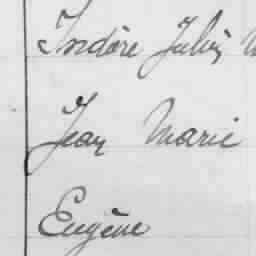 Isidore Julien
Jean Marie
Eugène